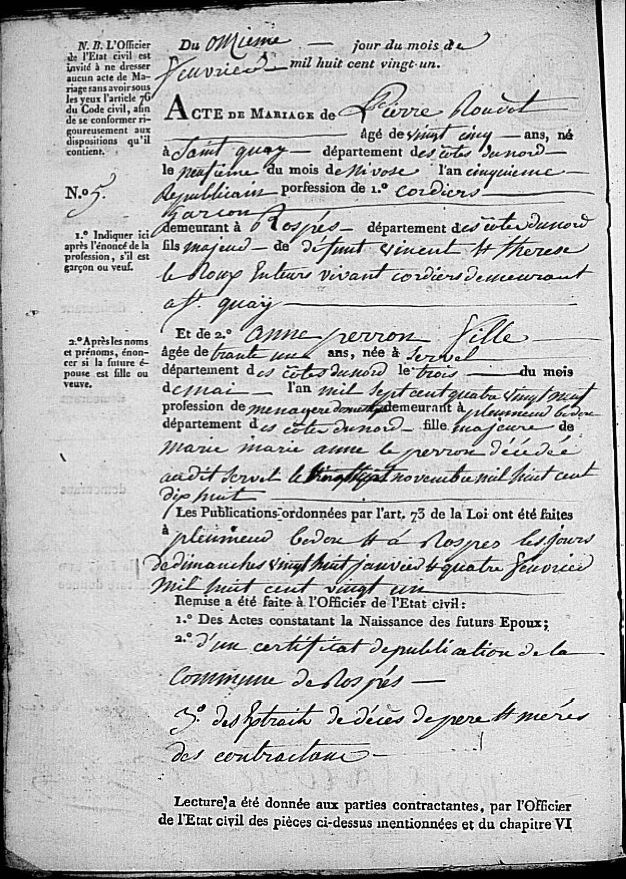 N. B. L'Officier
de l'Etat civil est
invité à ne dresser
aucun acte de Ma-
riage sans avoir sous
les yeux l'article 76
du Code civil, afin
de se conformer ri-
goureusement aux
dispositions qu'il
contient.
N.º 5
1.º Indiquer ici
après l'énoncé de la
profession, s'il est
garçon ou veuf.
2.º Après les noms
et prénoms, énon-
cer si la future é-
pouse est fille ou
veuve.
Du onzieme jour du mois de
fevrier mil huit cent vingt un.
ACTE DE MARIAGE de Pierre
âgé de vingt cinq ans, né
à Saint quay département des cotes du nord
le neufieme du mois de Nivose l'an cinquieme
Republicain porfession de 1.º cordiers
garcon
demeurant à Rospés département des cotes du nord
fils majeur de defunt vincent et therese
le Roux vivant cordiers demeurant
a st. quay
Et de 2.º anne perron fille
âgée de trante une ans, née à Servel
département des côtes du nord le trois du mois
de mai l'an mil sept cent quatre vingt neuf
profession de menagere demeurant à pleumeur bodou
département des côtes du nord fille majeure de
marie marie anne le perron décédée
audit Servel le novembre mil huit cent
dix huit
Les Publications ordonnées par l'art. 73 de la Loi ont été faites
à pleumeur bodou et a Rospes les jours
de dimanches vingt huit janvier et quatre fevrier
mil huit cent vingt un
Remise a été faite à l'Officier de l'Etat civil:
1.º Des Actes constatant la Naissance des futurs Epoux;
2.º d'un certificat de publication de la
Commune de Rospés
3.º des Extrait de décès de pere et meres
des contractans
Lecture a été donnée aux parties contractantes, par l'Officier
de l'Etat civil des pièces ci-dessus mentionnées et du chapitre VI